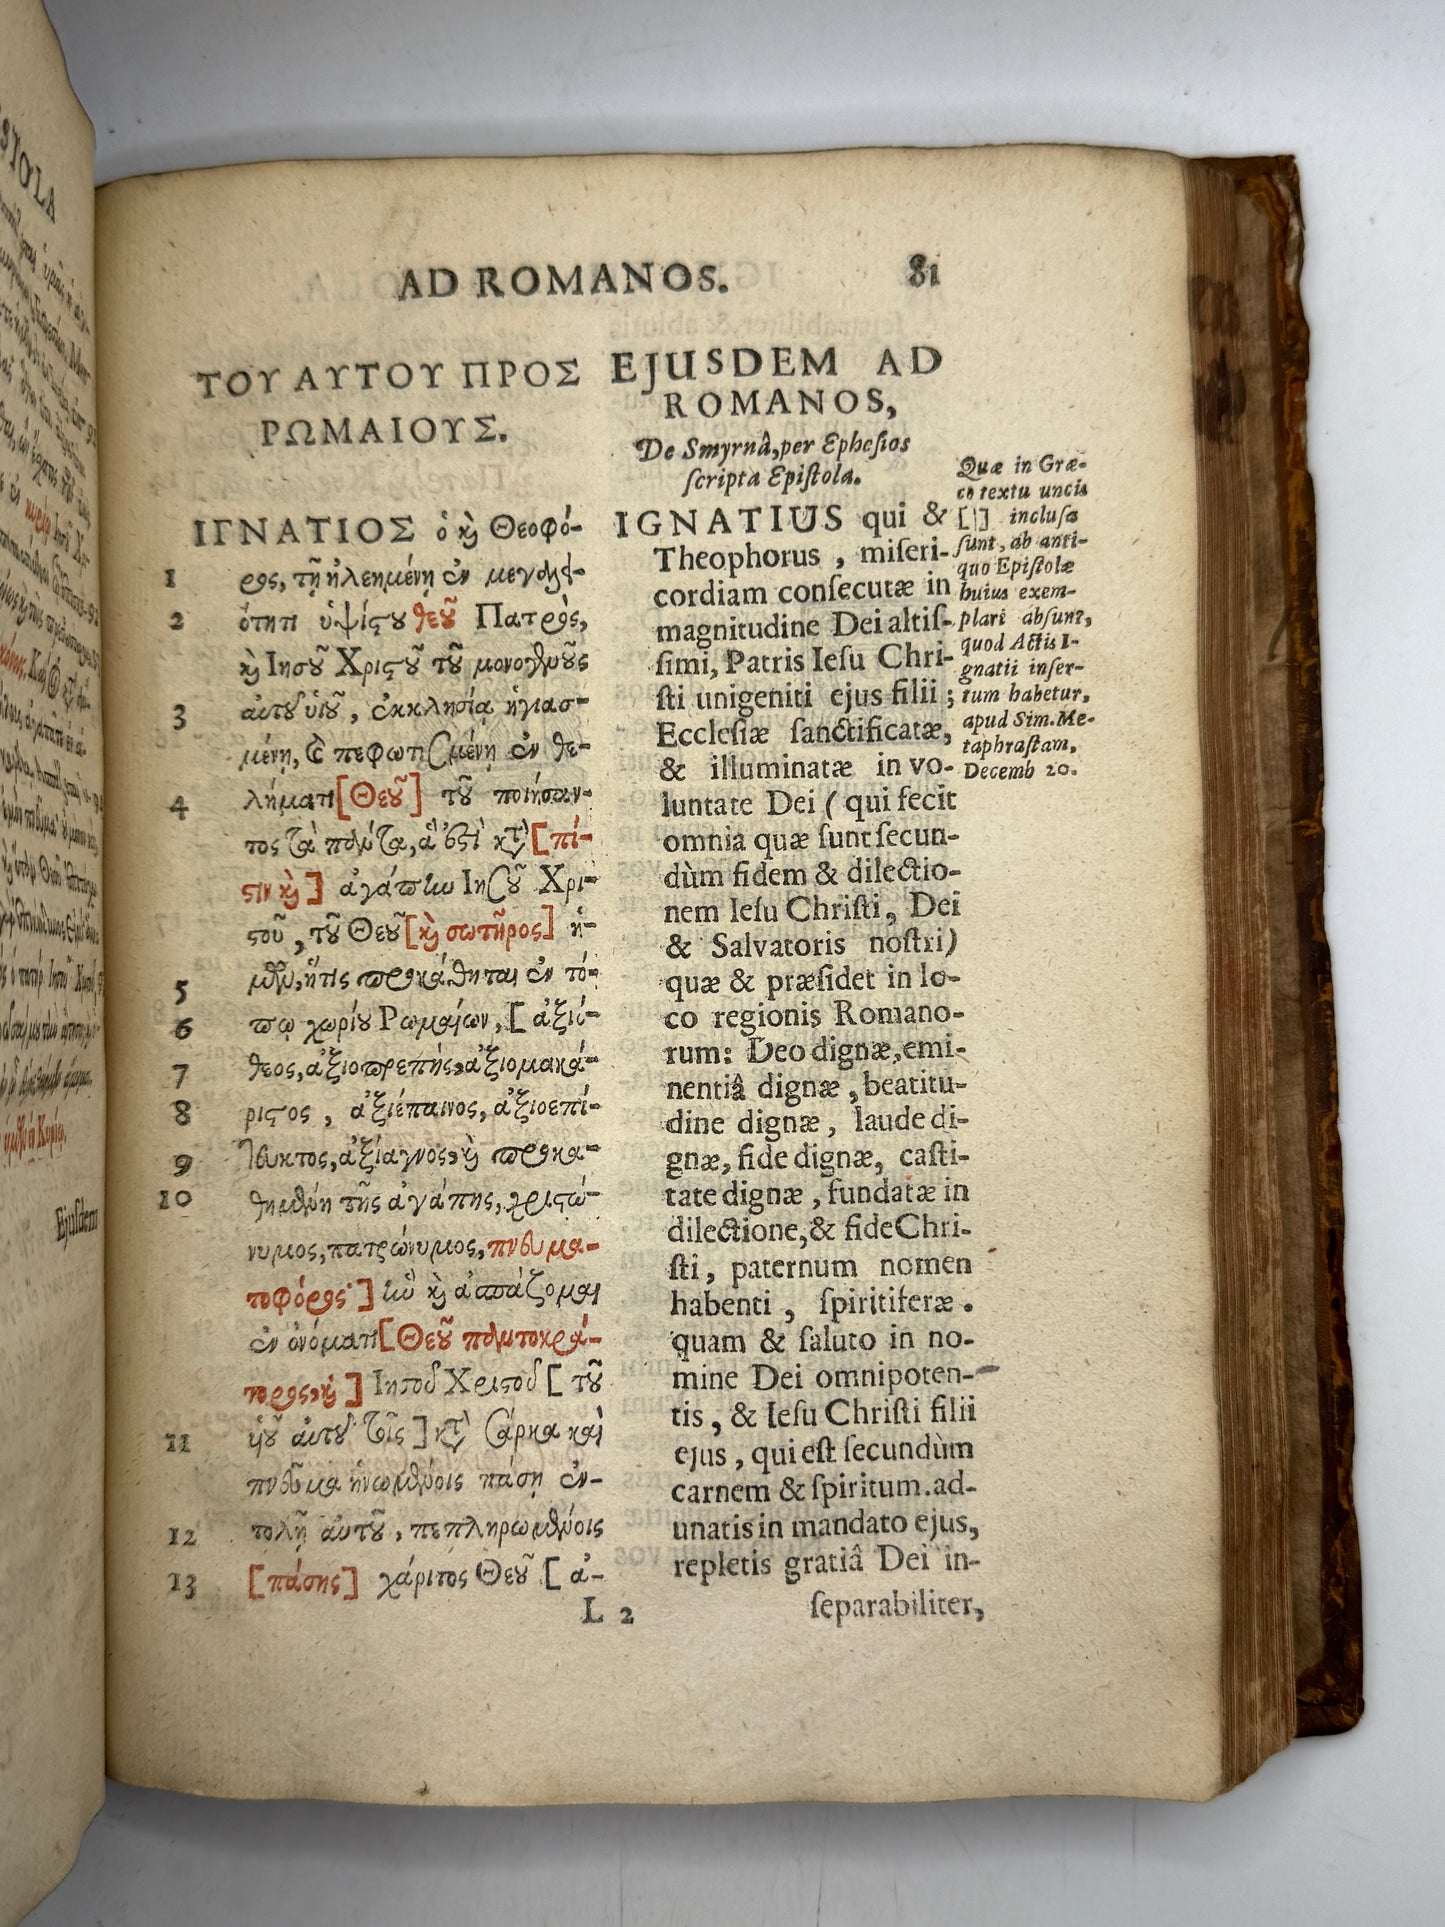 AD ROMANOS.
81
ΤΟΥ ΑΥΤΟΥ ΠΡΟΣ
ΡΩΜΑΙΟΥΣ.
ΙΓΝΑΤΙΟΣ ὁ ϗ Θεοφό-
1 ρος, τῇ ἠλεημένῃ ἐν μεγαλει-
2 ότητι ὑψίϛου θεοῦ Πατρὸς,
ϗ Ιησοῦ Χριϛοῦ τοῦ μονογενοῦς
3 αὐτοῦ ὑιοῦ, ἐκκλησίᾳ ἡγιασ-
μένῃ, ϗ πεφωτισμένῃ ἐν θε-
4 λήματι [Θεοῦ] τοῦ ποιήσαν-
τος τὰ πάντα, ἅ ἐϛὶ κτ̀ [πί-
ϛιν ϗ] ἀγάπην Ιησοῦ Χρι-
ϛοῦ, τοῦ Θεοῦ [ϗ σωτῆρος] ἡ-
5 μῶν, ἥτις προκάθηται ἐν τό-
6 πῳ χωρίου Ρωμαίων, [ ἀξιό-
7 θεος, ἀξιοπρεπής, ἀξιομακά-
8 ριϛος, ἀξιέπαινος, ἀξιοεπί-
9 τευκτος, ἀξίαγνος, ϗ προκα-
10 θημένη τῆς ἀγάπης, χριϛώ-
νυμος, πατρώνυμος, πνευμα-
τοφόρος· ] ἣν ϗ ἀσπάζομαι
ἐν ὀνόματι [Θεοῦ παντοκρά-
τορος, ϗ ] Ιησοῦ Χριϛοῦ [ τοῦ
11 ὑιοῦ ἀυτοῦ τοῖς ] κτ̀ σάρκα καὶ
πνεῦμα ἡνωμένοις πάσῃ ἐν-
12 τολῇ αυτοῦ, πεπληρωμένοις
13 [πάσης] χάριτος Θεοῦ [ ἀ-
EJUSDEM AD
ROMANOS,
De Smyrnâ, per Ephesios
ſcripta Epiſtola.
IGNATIUS qui &
Theophorus, miſeri-
cordiam conſecutæ in
magnitudine Dei altiſ-
ſimi, Patris Ieſu Chri-
ſti unigeniti ejus filii;
Eccleſiæ ſanctificatæ,
& illuminatæ in vo-
luntate Dei ( qui fecit
omnia quæ ſunt ſecun-
dùm fidem & dilectio-
nem Ieſu Chriſti, Dei
& Salvatoris noſtri)
quæ & præſidet in lo-
co regionis Romano-
rum: Deo dignæ, emi-
nentiâ dignæ, beatitu-
dine dignæ, laude di-
gnæ, fide dignæ, caſti-
tate dignæ, fundatæ in
dilectione, & fide Chri-
ſti, paternum nomen
habenti, ſpiritiferæ.
quam & ſaluto in no-
mine Dei omnipoten-
tis, & Ieſu Chriſti filii
ejus, qui eſt ſecundùm
carnem & ſpiritum. ad-
unatis in mandato ejus,
repletis gratiâ Dei in-
Quæ in Græ-
co textu uncis
[ ] incluſa
ſunt, ab anti-
quo Epiſtolæ
huius exem-
plari abſunt,
quod Actis I-
gnatii inſer-
tum habetur,
apud Sim. Me-
taphraſtam,
Decemb 20.
L 2
ſeparabiliter,
Ejuſdem